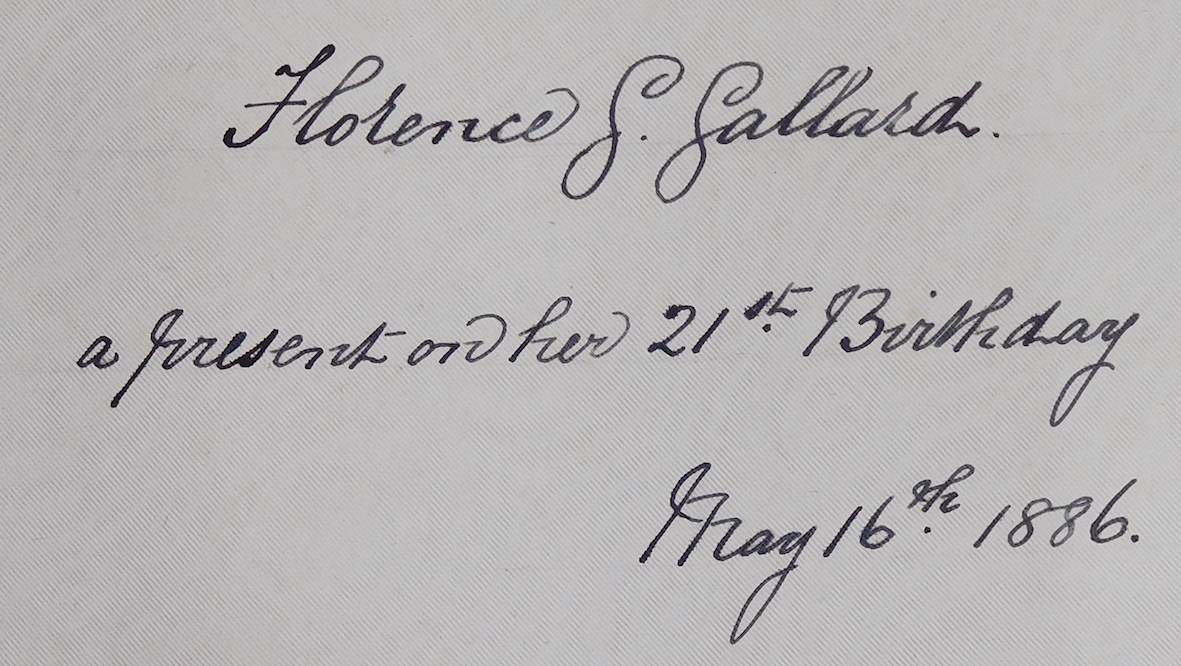 Florence G. Gallard.
a present on her 21st Birthday
May 16th 1886.